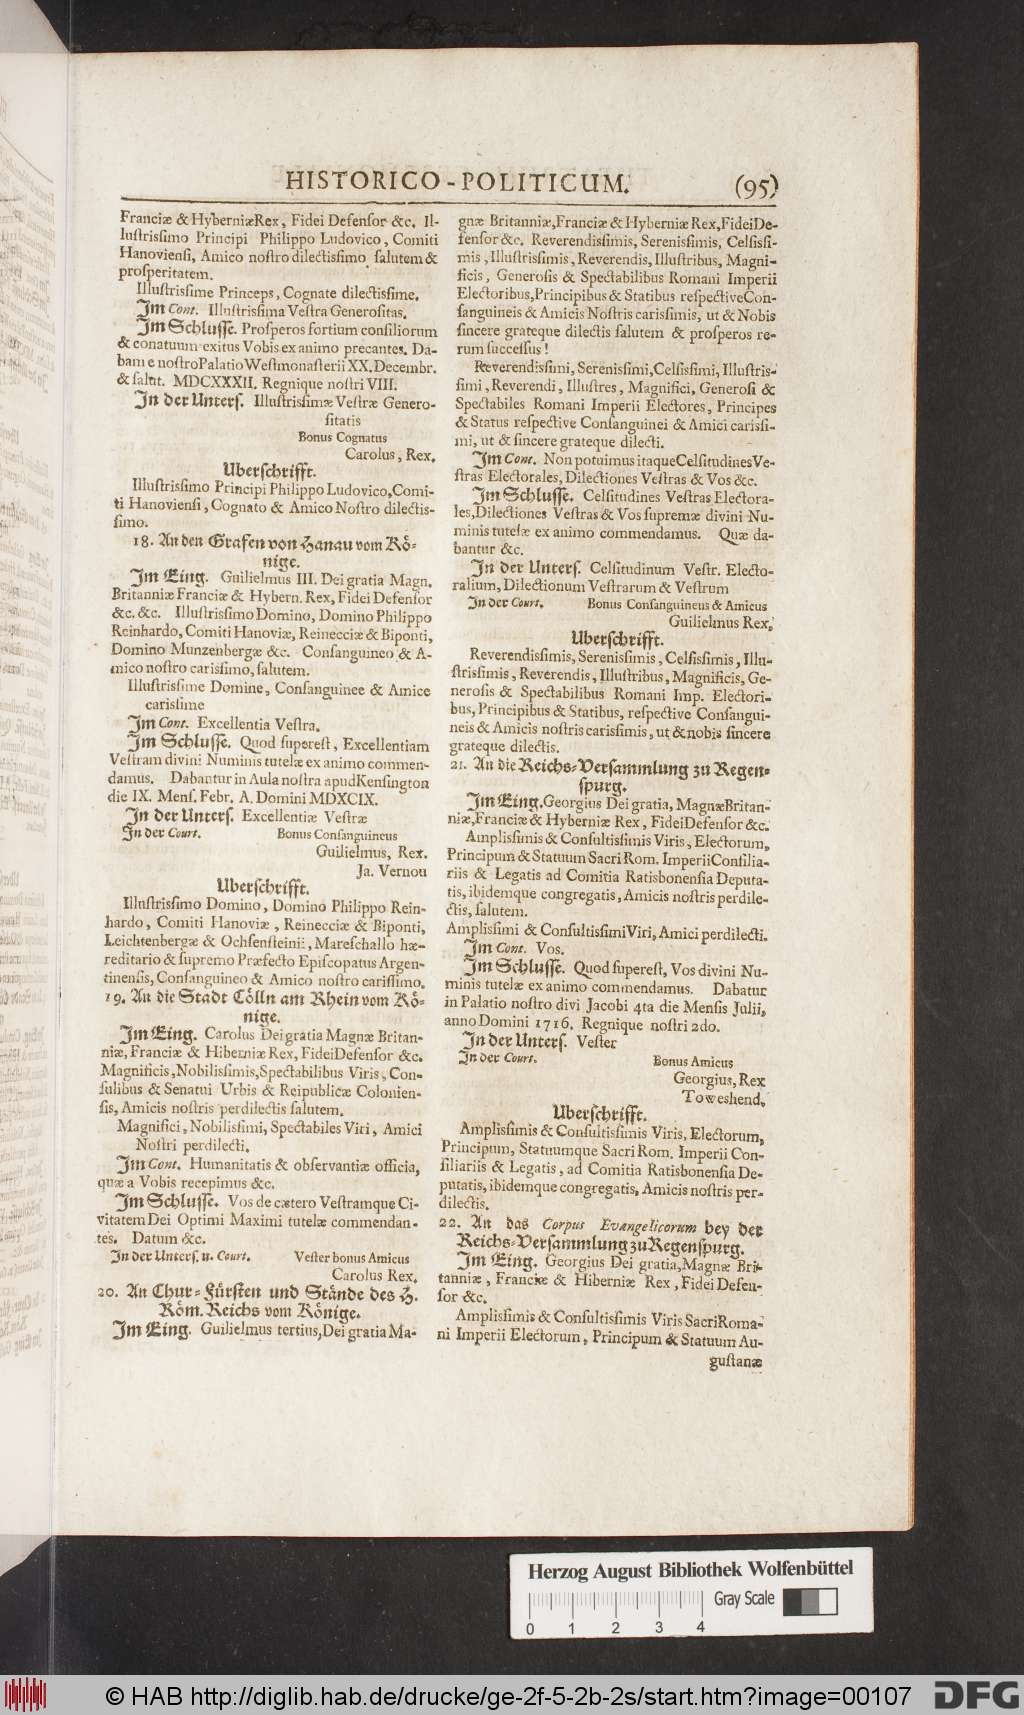 HISTORICO-POLITICUM. (95)
Franciæ & HyberniæRex, Fidei Defenſor &c. Il-
luſtriſſimo Principi Philippo Ludovico, Comiti
Hanovienſi, Amico noſtro dilectiſſimo ſalutem &
proſperitatem.
Illuſtriſſime Princeps, Cognate dilectiſſime.
Im Cont. Illuſtriſſima Veſtra Generoſitas.
Im Schluſſe. Proſperos fortium conſiliorum
& conatuum exitus Vobis ex animo precantes. Da-
bam e noſtro Palatio Weſtmonaſterii XX. Decembr.
& ſalut. MDCXXXII. Regnique noſtri VIII.
In der Unterſ. Illuſtriſſimæ Veſtræ Genero-
ſitatis
Bonus Cognatus
Carolus, Rex.
Uberſchrifft.
Illuſtriſſimo Principi Philippo Ludovico, Comi-
ti Hanovienſi, Cognato & Amico Noſtro dilectis-
ſimo.
18. An den Grafen von Hanau vom Kö-
nige.
Im Eing. Guilielmus III. Dei gratia Magn.
Britanniæ Franciæ & Hybern. Rex, Fidei Defenſor
&c. &c. Illuſtriſſimo Domino, Domino Philippo
Reinhardo, Comiti Hanoviæ, Reinecciæ & Biponti,
Domino Munzenbergæ &c. Conſanguineo & A-
mico noſtro cariſſimo, ſalutem.
Illuſtriſſime Domine, Conſanguinee & Amice
cariſſime
Im Cont. Excellentia Veſtra.
Im Schluſſe. Quod ſupereſt, Excellentiam
Veſtram divini Numinis tutelæ ex animo commen-
damus. Dabantur in Aula noſtra apud Kenſington
die IX. Menſ. Febr. A. Domini MDXCIX.
In der Unterſ. Excellentiæ Veſtræ
In der Court. Bonus Conſanguineus
Guilielmus, Rex.
Ja. Vernou
Uberſchrifft.
Illuſtriſſimo Domino, Domino Philippo Rein-
hardo, Comiti Hanoviæ, Reinecciæ & Biponti,
Leichtenbergæ & Ochſenſteinii, Mareſchallo hæ-
reditario & ſupremo Præfecto Epiſcopatus Argen-
tinenſis, Conſanguineo & Amico noſtro cariſſimo.
19. An die Stadt Cölln am Rhein vom Kö-
nige.
Im Eing. Carolus Dei gratia Magnæ Britan-
niæ, Franciæ & Hiberniæ Rex, Fidei Defenſor &c.
Magnificis, Nobiliſſimis, Spectabilibus Viris, Con-
ſulibus & Senatui Urbis & Reipublicæ Colonien-
ſis, Amicis noſtris perdilectis ſalutem.
Magnifici, Nobiliſſimi, Spectabiles Viri, Amici
Noſtri perdilecti.
Im Cont. Humanitatis & obſervantiæ officia,
quæ a Vobis recepimus &c.
Im Schluſſe. Vos de cætero Veſtramque Ci-
vitatem Dei Optimi Maximi tutelæ commendan-
tes. Datum &c.
In der Unterſ. u. Court. Veſter bonus Amicus
Carolus Rex.
20. An Chur-Fürſten und Stände des H.
Röm. Reichs vom Könige.
Im Eing. Guilielmus tertius, Dei gratia Ma-
gnæ Britanniæ, Franciæ & Hyberniæ Rex, Fidei De-
fenſor &c. Reverendiſſimis, Sereniſſimis, Celſiſſi-
mis, Illuſtriſſimis, Reverendis, Illuſtribus, Magni-
ficis, Generoſis & Spectabilibus Romani Imperii
Electoribus, Principibus & Statibus reſpective Con-
ſanguineis & Amicis Noſtris cariſſimis, ut & Nobis
ſincere grateque dilectis ſalutem & proſperos re-
rum ſucceſſus!
Reverendiſſimi, Sereniſſimi, Celſiſſimi, Illuſtriſ-
ſimi, Reverendi, Illuſtres, Magnifici, Generoſi &
Spectabiles Romani Imperii Electores, Principes
& Status reſpective Conſanguinei & Amici cariſſi-
mi, ut & ſincere grateque dilecti.
Im Cont. Non potuimus itaque Celſitudines Ve-
ſtras Electorales, Dilectiones Veſtras & Vos &c.
Im Schluſſe. Celſitudines Veſtras Electora-
les, Dilectiones Veſtras & Vos ſupremæ divini Nu-
minis tutelæ ex animo commendamus. Quæ da-
bantur &c.
In der Unterſ. Celſitudinum Veſtr. Electo-
ralium, Dilectionum Veſtrarum & Veſtrum
In der Court. Bonus Conſanguineus & Amicus
Guilielmus Rex.
Uberſchrifft.
Reverendiſſimis, Sereniſſimis, Celſiſſimis, Illu-
ſtriſſimis, Reverendis, Illuſtribus, Magnificis, Ge-
neroſis & Spectabilibus Romani Imp. Electori-
bus, Principibus & Statibus, reſpective Conſangui-
neis & Amicis noſtris cariſſimis, ut & nobis ſincere
grateque dilectis.
21. An die Reichs-Verſammlung zu Regen-
ſpurg.
Im Eing. Georgius Dei gratia, Magnæ Britan-
niæ, Franciæ & Hyberniæ Rex, Fidei Defenſor &c.
Ampliſſimis & Conſultiſſimis Viris, Electorum,
Principum & Statuum Sacri Rom. Imperii Conſilia-
riis & Legatis ad Comitia Ratisbonenſia Deputa-
tis, ibidemque congregatis, Amicis noſtris perdile-
ctis, ſalutem.
Ampliſſimi & Conſultiſſimi Viri, Amici perdilecti.
Im Cont. Vos.
Im Schluſſe. Quod ſupereſt, Vos divini Nu-
minis tutelæ ex animo commendamus. Dabatur
in Palatio noſtro divi Jacobi 4ta die Menſis Julii,
anno Domini 1716. Regnique noſtri 2do.
In der Unterſ. Veſter
In der Court. Bonus Amicus
Georgius, Rex
Toweshend.
Uberſchrifft.
Ampliſſimis & Conſultiſſimis Viris, Electorum,
Principum, Statuumque Sacri Rom. Imperii Con-
ſiliariis & Legatis, ad Comitia Ratisbonenſia De-
putatis, ibidemque congregatis, Amicis noſtris per-
dilectis.
22. An das Corpus Evangelicorum bey der
Reichs-Verſammlung zu Regenſpurg.
Im Eing. Georgius Dei gratia, Magnæ Bri-
tanniæ, Franciæ & Hiberniæ Rex, Fidei Defen-
ſor &c.
Ampliſſimis & Conſultiſſimis Viris Sacri Roma-
ni Imperii Electorum, Principum & Statuum Au-
guſtanæ
Herzog August Bibliothek Wolfenbüttel
0 1 2 3 4 Gray Scale
© HAB http://diglib.hab.de/drucke/ge-2f-5-2b-2s/start.htm?image=00107 DFG